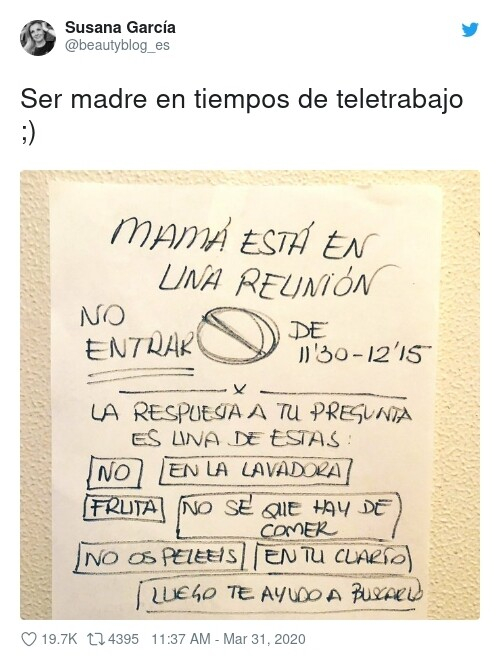 Susana García
@beautyblog_es
Ser madre en tiempos de teletrabajo
;)
MAMÁ ESTÁ EN
UNA REUNIÓN
NO
ENTRAR
DE
11'30-12'15
x
LA RESPUESTA A TU PREGUNTA
ES UNA DE ESTAS:
NO EN LA LAVADORA
FRUTA NO SÉ QUE HAY DE
COMER
NO OS PELEEIS EN TU CUARTO
LUEGO TE AYUDO A BUSCARLO
19.7K 4395 11:37 AM - Mar 31, 2020